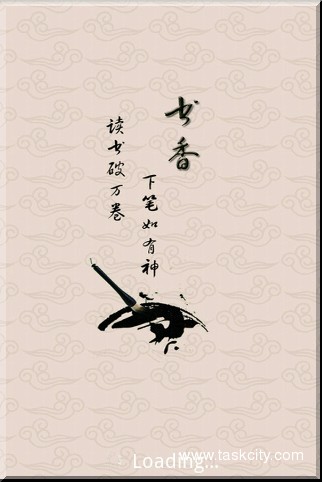 书香
读书破万卷
下笔如有神
Loading...
www.taskcity.com